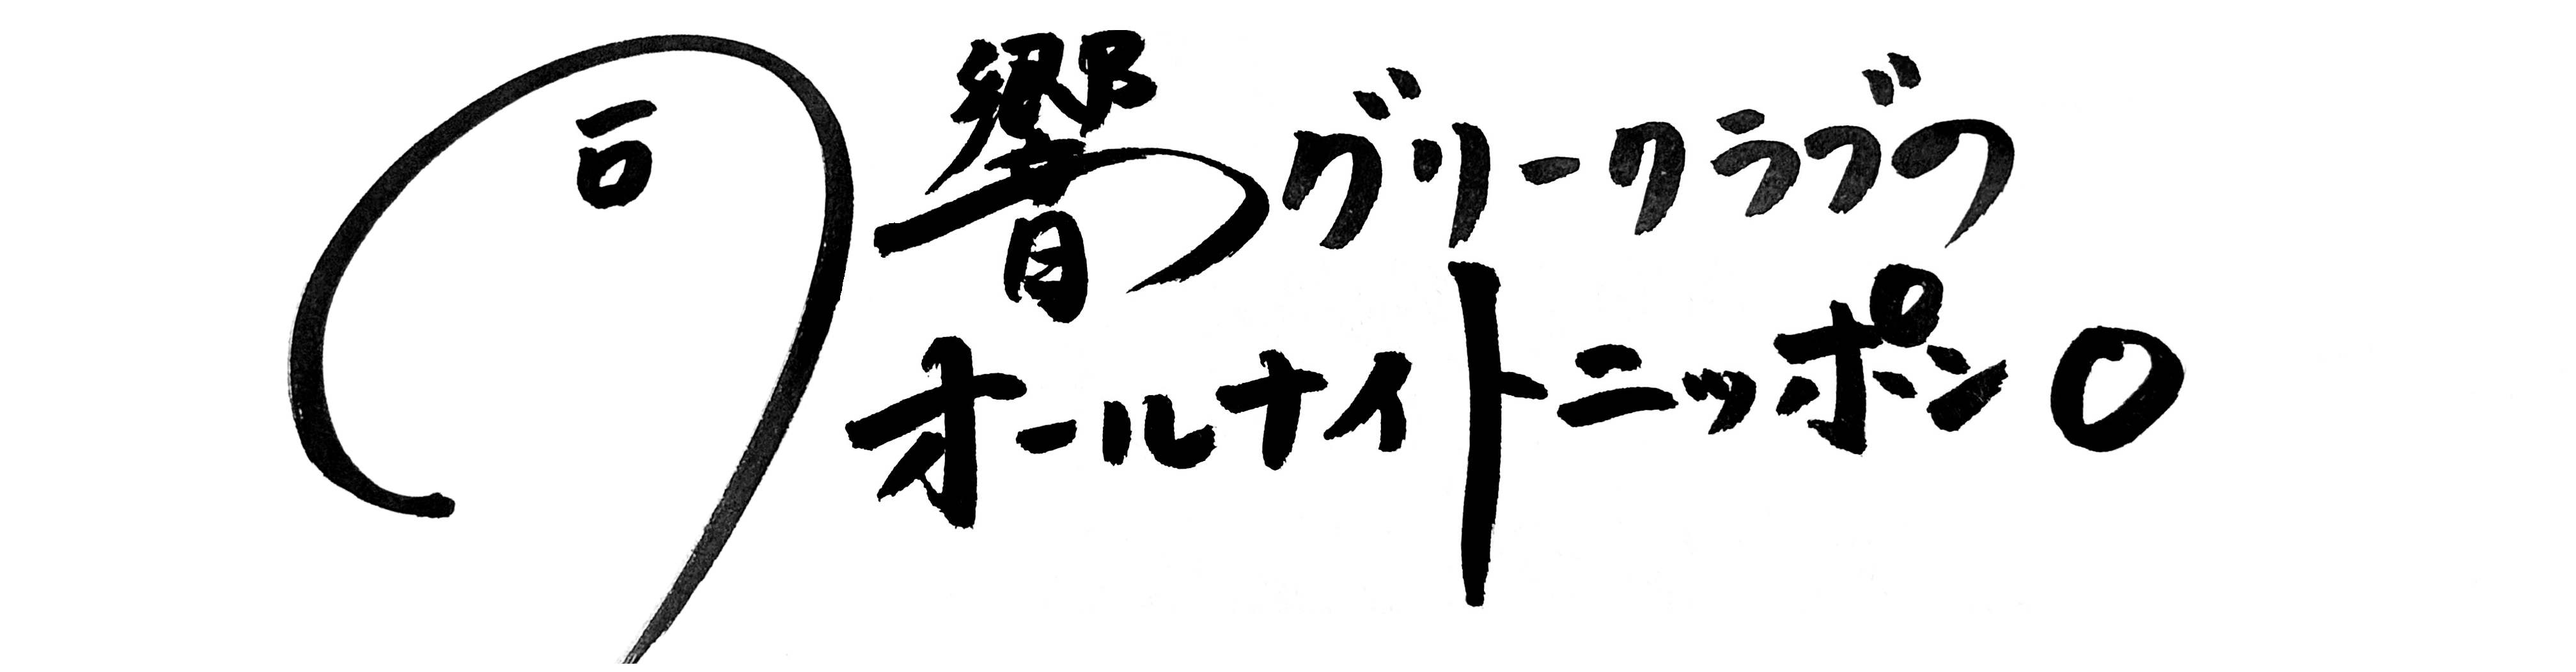 同響グリークラブの
オールナイトニッポン0